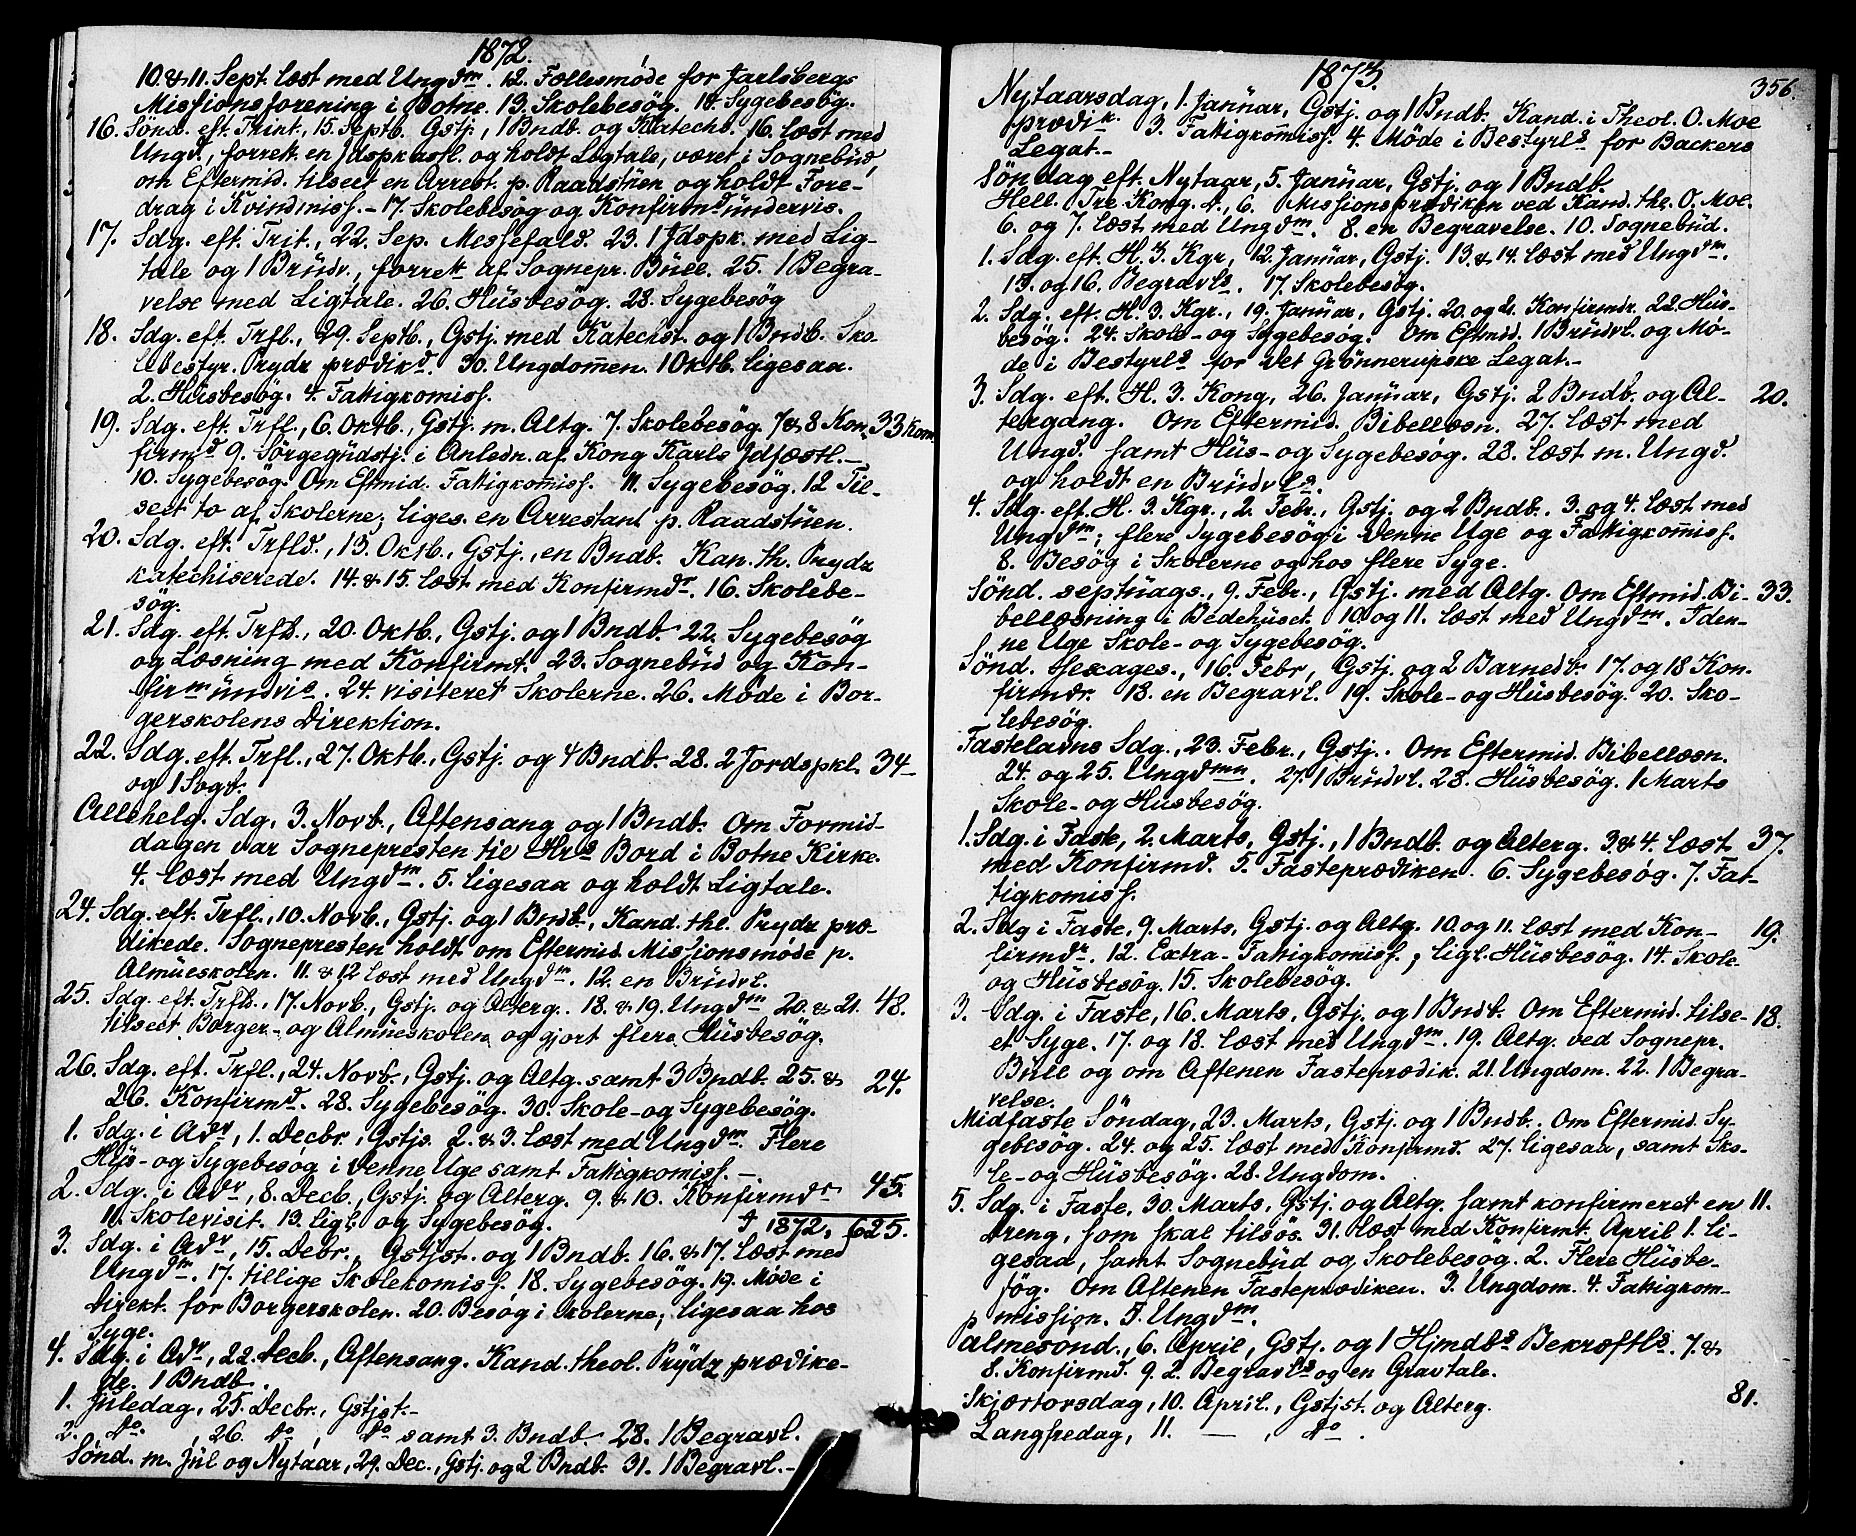 1872.
10 & 11. Sept. læst med Ungdm. 12. Fællesmøde for Jarlsbergs
Missionsforening i Botne. 13. Skolebesøg. 14. Sygebesøg.
16. Sönd. eft. Trint., 15. Septb. Gstj., 1 Bndb. og Katechs. 16. læst med
Ungd., forrett. en Jdspkastl. og holdt Ligtale, været i Sognebüd,
om Eftermid. tilseet en Arrest. p. Raadstüen og holdt Fore-
drag i Kvindmiss. - 17. Skolebesøg og Konfirmdündervis.
17. Sdg. eft. Trit., 22. Sep. Messefald. 23. 1 Jdspk. med Lig-
tale og 1 Brüdv., forrett af Sognepr. Büll. 25. 1 Begra-
velse med Ligtale. 26. Hüsbesøg. 28. Sygebesøg
18. Sdg. eft. Trfl., 29. Septb., Gstj. med Katechst. og 1 Bndb. Sko-
lebestyr. Prydz prædikd. 30. Ungdom̅en. 1 Oktb. ligesaa.
2. Hüsbesøg. 4. Fattigkomiss.
19. Sdg. eft. Trfl., 6. Oktb., Gstj. m. Altg. 7. Skolebesøg. 7 & 8 Kon- 33 Kom.
firmd 9. Sörgegüdstj. i Anledn. af Kong Karls Jdfæstl. -
10. Sygebesøg. Om Eftmid. Fattigkomiss. 11. Sygebesøg. 12 Til-
seet to af Skolerne; liges. en Arrestant p. Raadstüen.
20. Sdg. eft. Trfld., 13. Oktb., Gstj., en Bndb. Kan. th. Prydz
katechiserede. 14. & 15. læst med Konfirmdr. 16. Skolebe-
søg.
21. Sdg. eft. Trfld., 20. Oktb., Gstj. og 1 Bndb. 22. Sygebesøg
og Læsning med Konfirmt. 23. Sognebüd og Kon-
firmündvis. 24. visiteret Skolerne. 26. Møde i Bor-
gerskolens Direktion.
22. Sdg. eft. Trfl., 27. Oktb., Gstj. og 4 Bndb. 28. 2 Jordspkl. 34
og 1 Sogb.
Allehelg. Sdg, 3. Novb., Aftensang og 1 Bndb. Om Formid-
dagen var Sognepresten til Hrs Bord i Botne Kirke.
4. læst med Ungdm. 5. ligesaa og holdt Ligtale.
24. Sdg. eft. Trfl., 10. Novb., Gstj. og 1 Bndb., Kand. thl. Prydz præ-
dikede. Sognepresten holdt om Eftermid. Missionsmøde p.
Almüeskolen. 11. & 12 læst med Ungdm. 12. en Brüdvl.
25. Sdg. eft. Trfld., 17. Novb., Gstj. og Alterg. 18. & 19. Ungdm 20. & 21. 48.
tilseet Borger- og Almueskolen og gjort flere Hüsbesøg.
26. Sdg. eft. Trfl., 24. Novb., Gstj. og Altg. samt 3 Bndb. 25. & 24.
26. Konfirmd. 28. Sygebesøg. 30. Skole- og Sygebesøg.
1. Sdg. i Advr, 1. Decbr., Gstjs. 2. & 3. læst med Ungdm. Flere
Hüs- og Sygebesøg i denne Uge samt Fattigkomiss. -
2. Sdg. i Advr, 8. Decb., Gstj. og Alterg. 9. & 10. Konfirmdr 45.
11. Skolevisit. 13. ligl. og Sygebesøg. 1872, 625.
3. Sdg. i Advr, 15. Debr., Gstjst. og 1 Bndb. 16. & 17. læst med
Ungdm. 17. tillige Skolekomiss. 18. Sygebesøg. 19. Møde i
Direkt. for Borgerskolen. 20. Besøg i Skolerne; ligesaa hos
Syge.
4. Sdg. i Advr, 22. Decb., Aftensang. Kand. theol. Prydz prædike-
de. 1 Bndb.
1. Jüledag, 25. Decbr., Gstjst. -
2. do. , 26. do , do samt 3. Bndb. 28. 1 Begravl.
Sönd. m. Jül og Nytaar, 29. Dec., Gstj. og 2 Bndb. 31. 1 Begravl. -
1873. 356.
Nytaarsdag, 1. Janüar, Gstj. og 1 Bndb. Kand. i Theol. O. Moe
prædik. 3. Fattigkomiss. 4. Møde i Bestyrls for Backers
Legat. -
Söndag eft. Nytaar, 5. Janüar, Gstj. og 1 Bndb.
Hell. Tre Kong. d., 6. Missionsprædiken ved Kand. the. O. Moe.
6. og 7. læst med Ungdm. 8. en Begravelse. 10. Sognebüd.
1. Sdg. eft. H. 3. Kgr, 12. Janüar, Gstj. 13. & 14. læst med Ungdm.
15. og 16. Begravls. 17. Skolebesøg.
2. Sdg. eft. H. 3. Kgr., 19. Janüar, Gstj. 20. og 21. Konfirmdr. 22. Hüs-
besøg. 24. Skole- og Sygebesøg. Om Eftmid. 1 Brüdvl. og Mø-
de i Bestyrls for Det Grönnerupske Legat. -
3. Sdg. eft. H. 3. Kong, 26. Janüar, Gstj. 2 Bndb. og Al- 20.
tergang. Om Eftermid. Bibellæsn. 27. læst med
Ungd. samt Hüs- og Sygebesøg. 28. læst m. Ungd.
og holdt en Brüdvls.
4. Sdg. eft. H. 3. Kgr., 2. Febr., Gstj. og 2 Bndb. 3. og 4. læst med
Ungdm; flere Sygebesøg i denne Uge og Fattigkomiss.
8. Besøg i Skolerne og hos flere Syge.
Sönd. septuags., 9. Febr., Gstj. med Altg. Om Eftmid. Bi- 33.
bellæsning i Bedehüset. 10. og 11. læst med Ungdm. I den-
ne Uge Skole- og Sygebesøg.
Sönd. Sexages., 16. Febr, Gstj. og 2 Barnedb. 17. og 18 Kon-
firmdr. 18. en Begravl. 19. Skole- og Hüsbesøg. 20. Sko-
lebesøg.
Fastelavns Sdg., 23. Febr., Gstj. Om Eftermid. Bibellæsn.
24. og 25. Ungdmn. 27. 1 Brüdvl. 28. Hüsbesøg. 1 Marts
Skole- og Hüsbesøg.
1. Sdg. i Faste, 2. Marts, Gstj., 1 Bndb. og Alterg. 3. & 4. læst 37.
med Konfirmd. 5. Fasteprædiken. 6. Sygebesøg. 7. Fat-
tigkomiss.
2. Sdg i Faste, 9. Marts, Gstj. og Altg. 10. og 11. læst med Kon- 19.
firmdr. 12. Extra- Fattigkomiss., ligl. Hüsbesøg. 14. Skole
og Hüsbesøg. 15. Skolebesøg.
3. Sdg. i Faste, 16. Marts, Gstj. og 1 Bndb. Om Eftermid. tilse- 18.
et Syge. 17. og 18. læst med Ungdm. 19. Altg. ved Sognepr.
Büll og om Aftenen Fasteprædik. 21. Ungdom. 22. 1 Begra-
velse.
Midfaste Söndag, 23. Marts, Gstj. og 1 Bndb. Om Eftermid. Sy-
gebesøg. 24. og 25. læst med Konfirmd. 27. ligesaa, samt Sko-
le- og Hüsbesøg. 28. Ungdom.
5. Sdg. i Faste, 30. Marts, Gstj. og Altg. samt konfirmeret en 11.
Dreng, som skal tilsøs. 31. læst med Konfirmt. April 1. li-
gesaa, samt Sognebüd og Skolebesøg. 2. Flere Hüsbe-
søg. Om Aftenen Fasteprædiken. 3. Ungdom. 4. Fattigkom-
mission. 5. Ungdm.
Palmesond., 6. April, Gstj. og 1 Hjmdbs Bekræftls. 7. &
8. Konfirmd. 9. 2. Begravls og en Gravtale.
Skjærtorsdag, 10. April., Gstjst. og Alterg. 81.
Langfredag, 11. — , do.